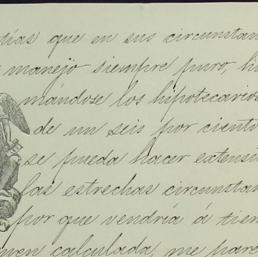 días que en sus circunstan
manejo siempre puro, ha
mándose los hipotecarios
de un seis por ciento
se pueda hacer extensi
las estrechas circunstan
por que vendría á tiem
calculada, me pare